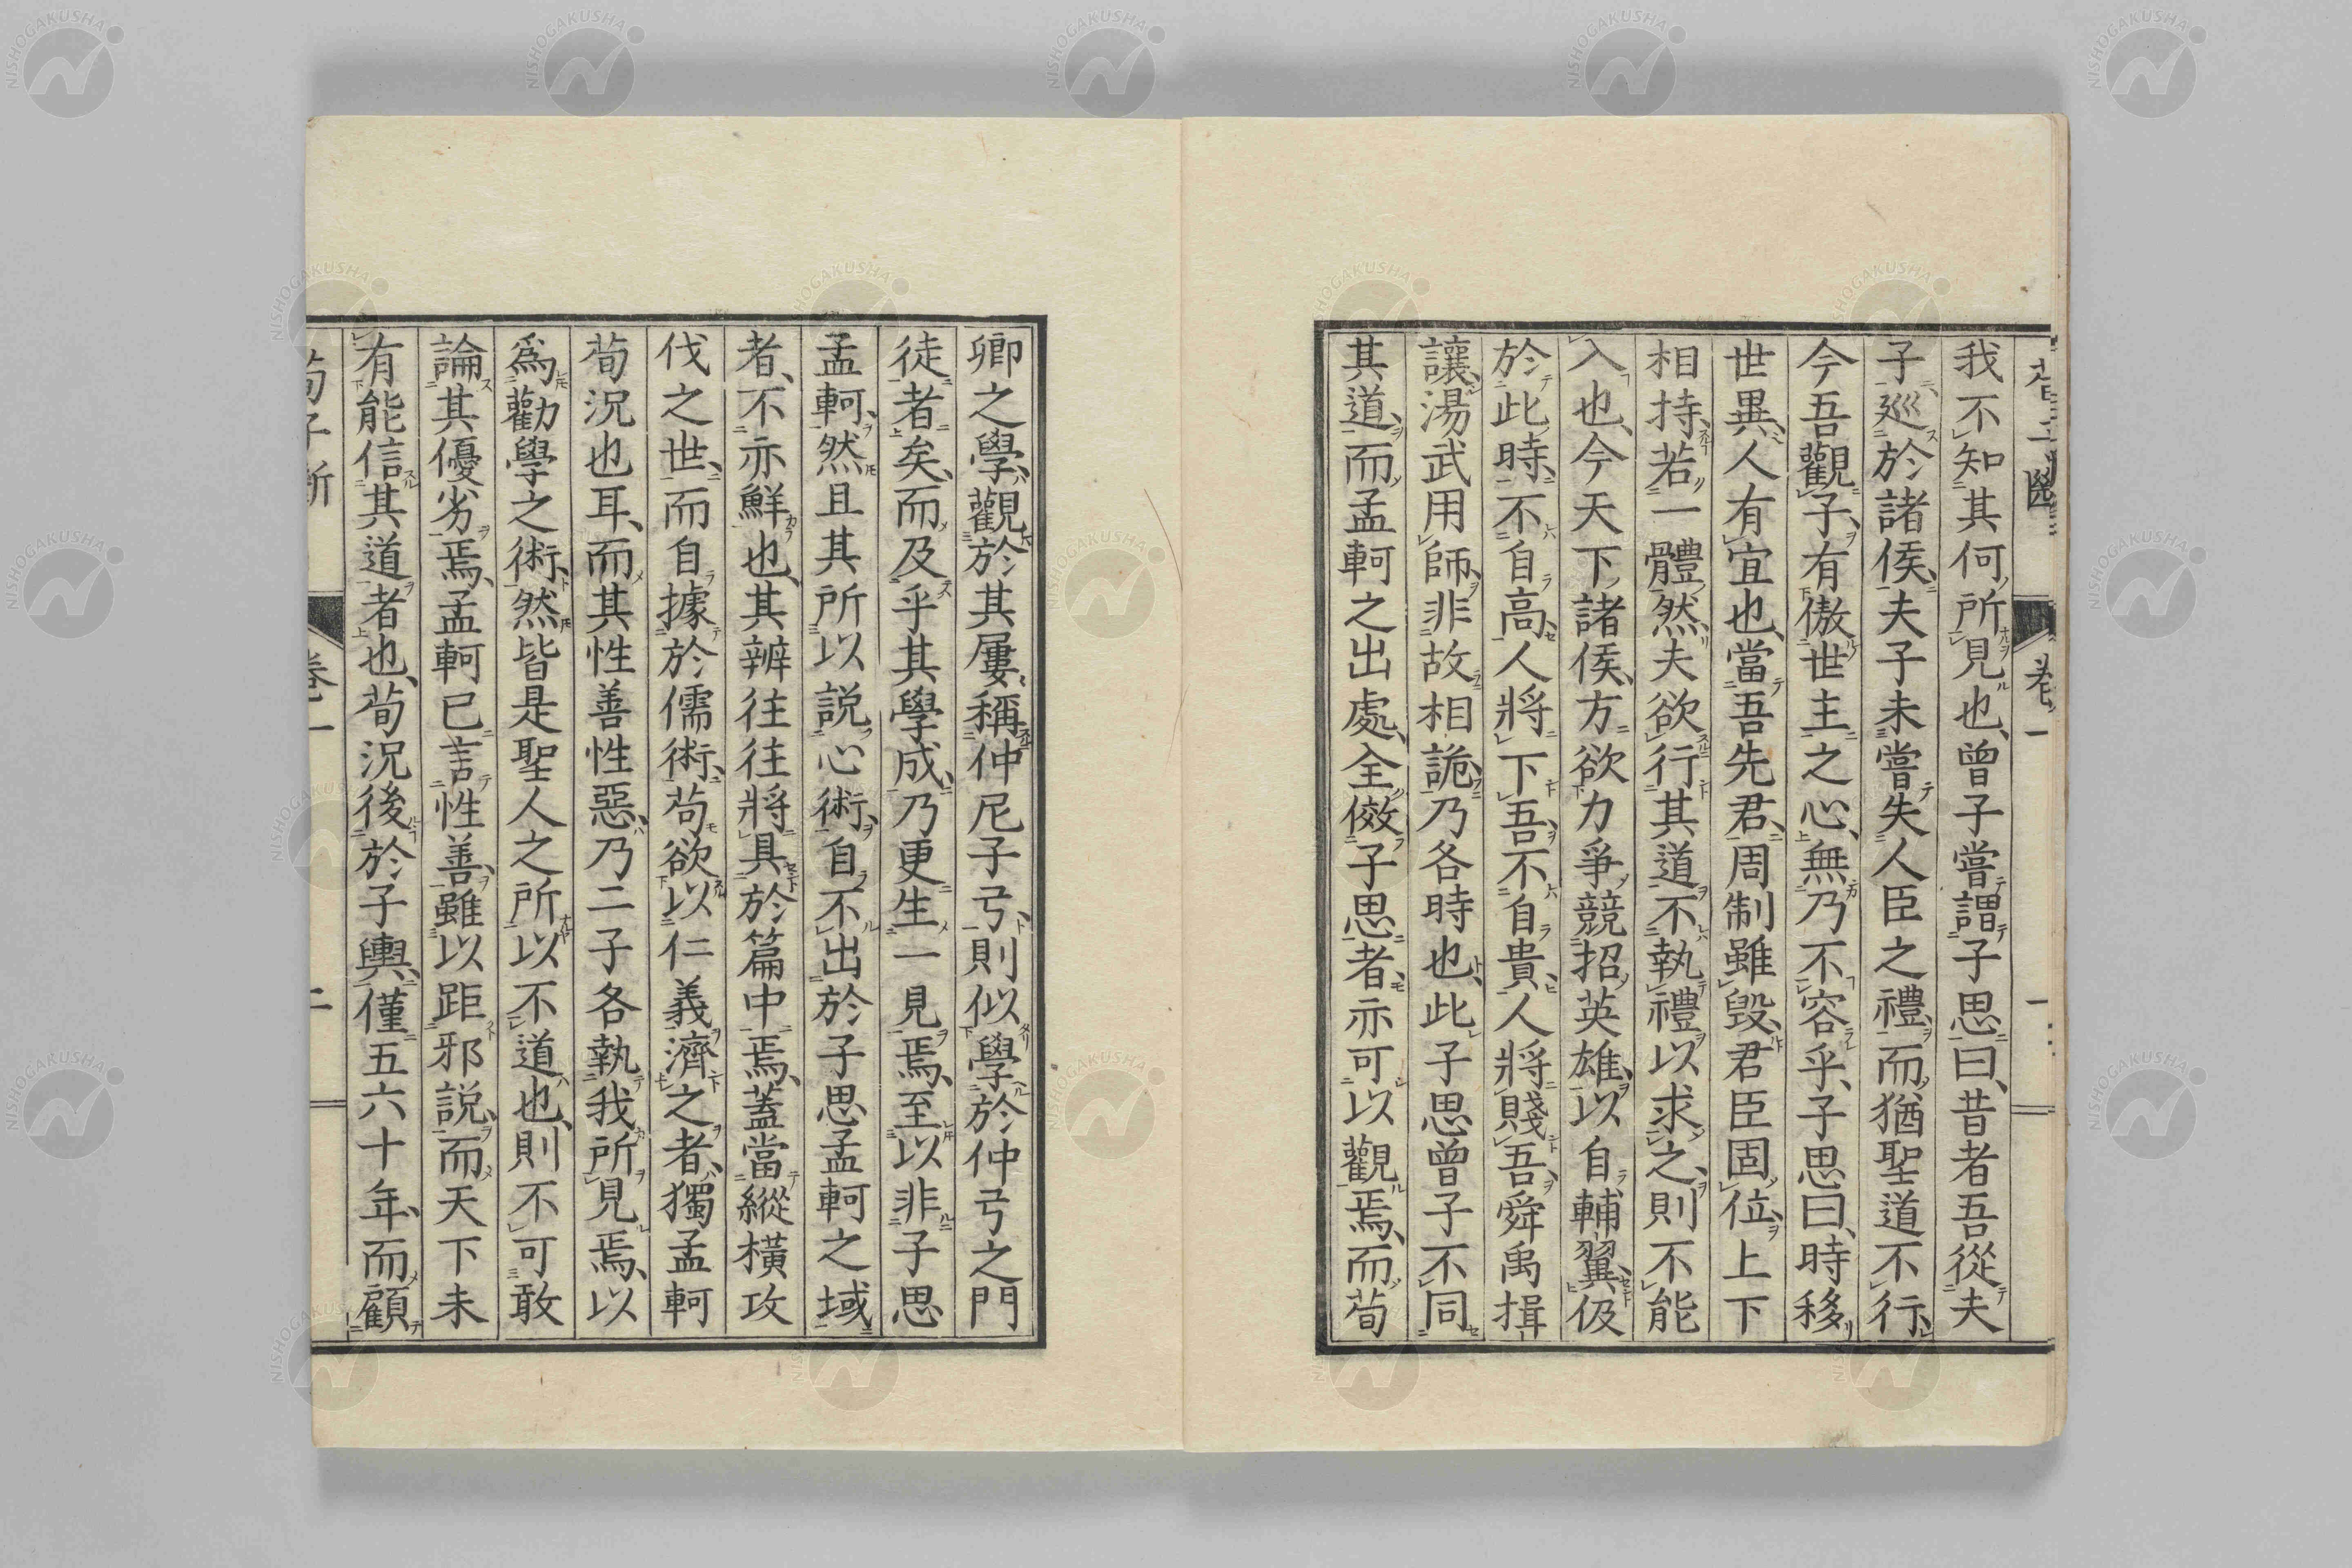 我不知其何所見也曾子嘗謂子思曰昔者吾從夫
子巡於諸侯夫子未嘗失人臣之禮而猶聖道不行
今吾觀子有傲世主之心無乃不容乎子思曰時移
世異人有宜也當吾先君周制雖毀君臣固位上下
相持若一體然夫欲行其道不執禮以求之則不能
入也今天下諸侯方欲力爭競招英雄以自輔翼伋
於此時不自高人將下吾不自貴人將賤吾舜禹揖
讓湯武用師非故相詭乃各時也此子思曾子不同
其道而孟軻之出處全傚子思者亦可以觀焉而荀
卿之學觀於其屢稱仲尼子弓則似學於仲弓之門
徒者矣而及乎其學成乃更生一見焉至以非子思
孟軻然且其所以説心術自不出於子思孟軻之域
者不亦鮮也其辨往往將具於篇中焉蓋當縱橫攻
伐之世而自據於儒術苟欲以仁義濟之者獨孟軻
荀況也耳而其性善性惡乃二子各執我所見焉以
爲勸學之術然皆是聖人之所以不道也則不可敢
論其優劣焉孟軻已言性善雖以距邪説而天下未
有能信其道者也荀況後於子輿僅五六十年而顧
荀子斷
卷一
二
NISHOGAKUSHA